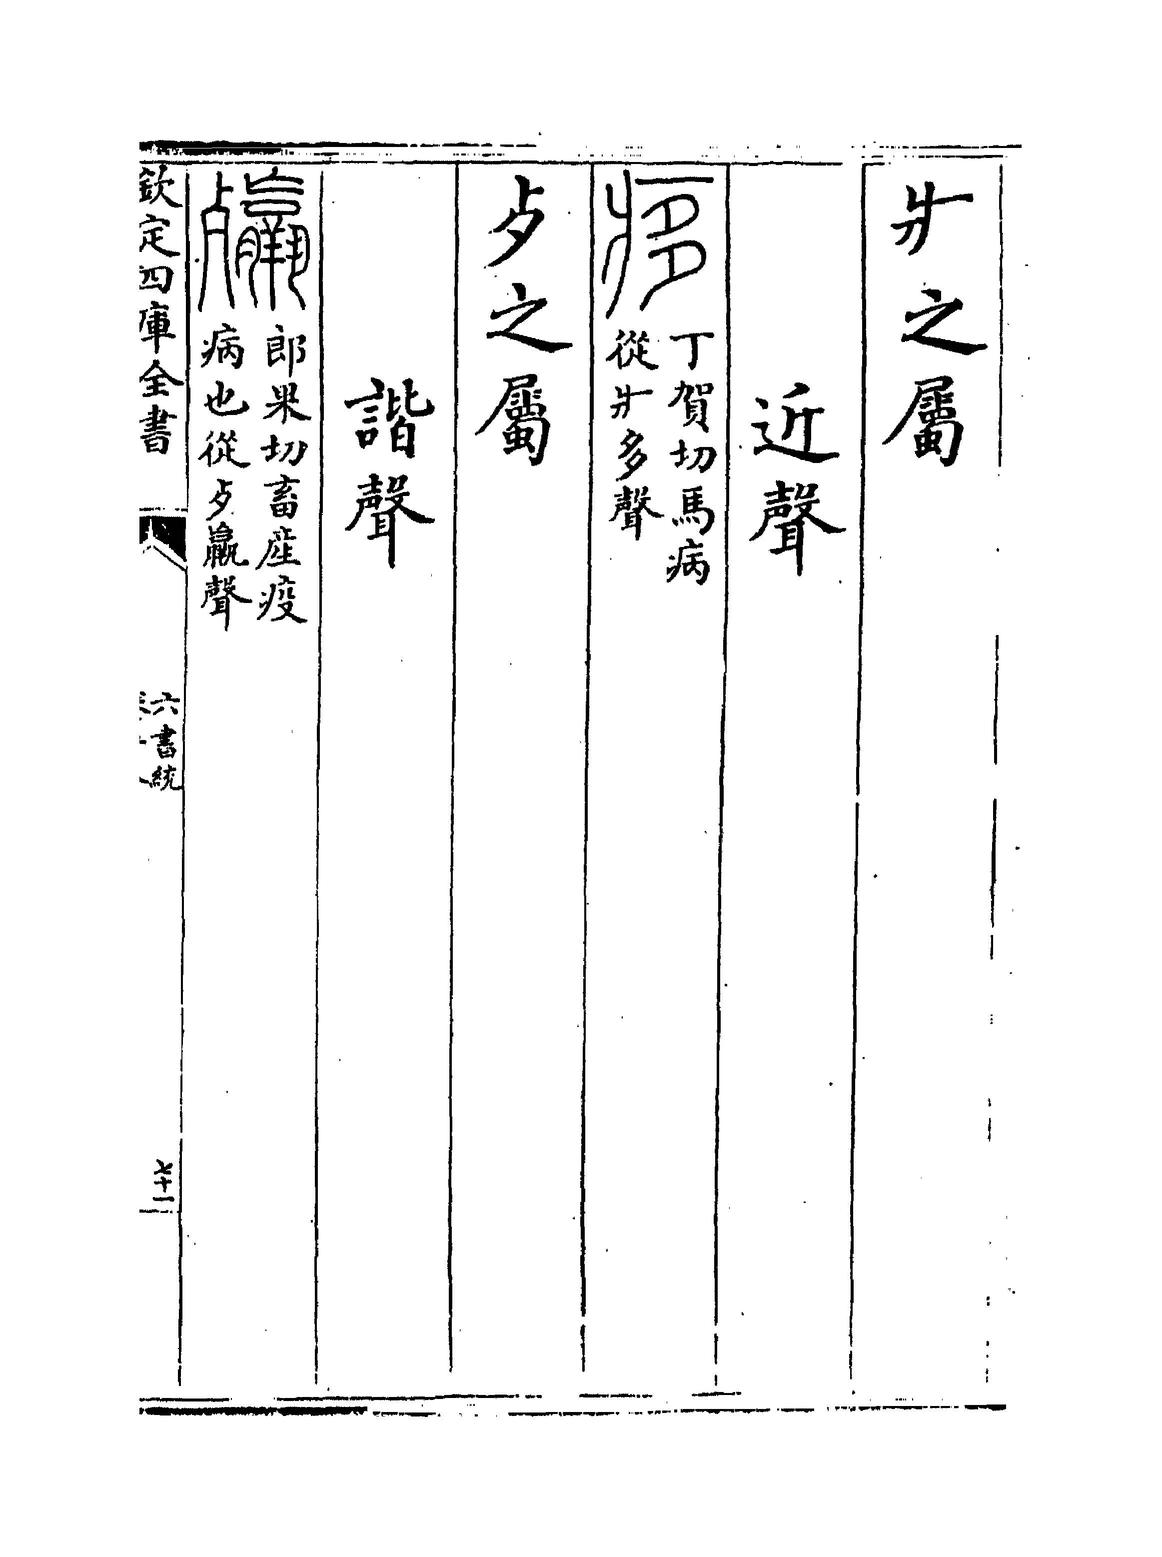 疒之屬
近聲
痑
丁賀切馬病
從疒多聲
歺之屬
諧聲
郎果切畜産疫
病也從歺羸聲
欽定四庫全書
六書統
七十一